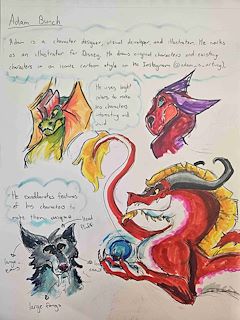 Adam Bunch
Adam is a character designer, visual developer, and illustrator. He works
as an illustrator for Disney. He draws original characters and existing
characters in an iconic cartoon style on his Instagram (@adam_is_arting).
He uses bright
colors to make
his characters
interesting and
He exaggerates features
of his characters to
make them unique
large
ears
large fangs